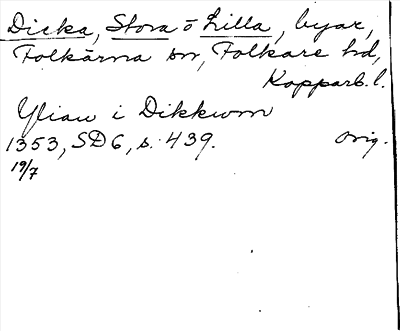 Dicka, Stora o Lilla, byar,
Folkärna sn, Folkare hd,
Kopparb. l.
Yliaw i Dikkwm
1353, SD6, s. 439. orig.
19/7